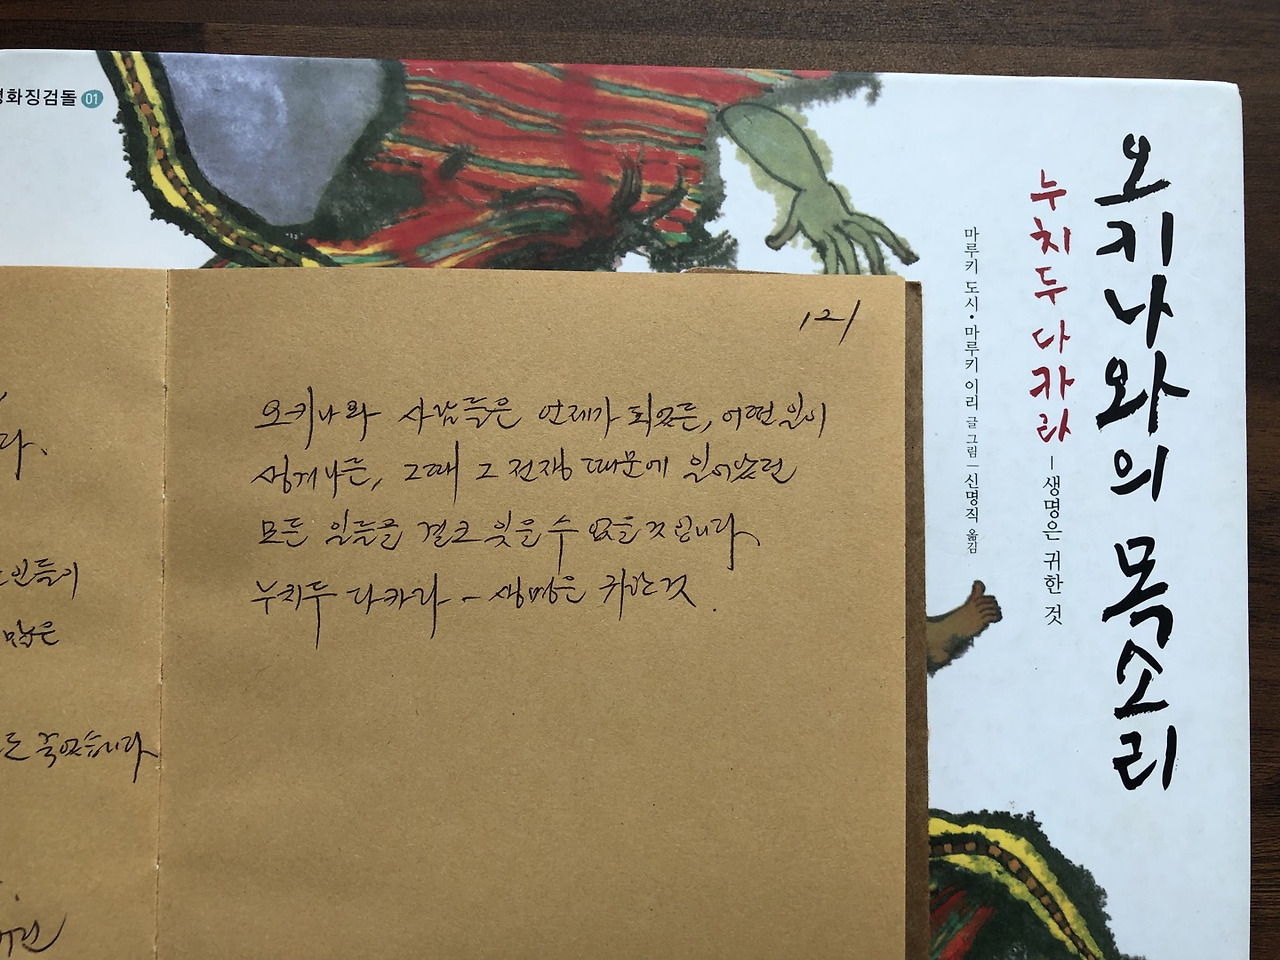 평화징검돌 01
오키나와의 목소리
누치두 다카라
–생명은 귀한 것
마루키 도시·마루키 이리 글 그림–신명직 옮김
121
오키나와 사람들은 언제가 되었든, 어떤 일이
생게나든, 그때 그 전쟁 때문에 일어났던
모든 일들을 결코 잊을 수 없을 것입니다.
누치두 다카라 - 생명은 귀한 것.
다.
인들이
많은
꿇었습니다